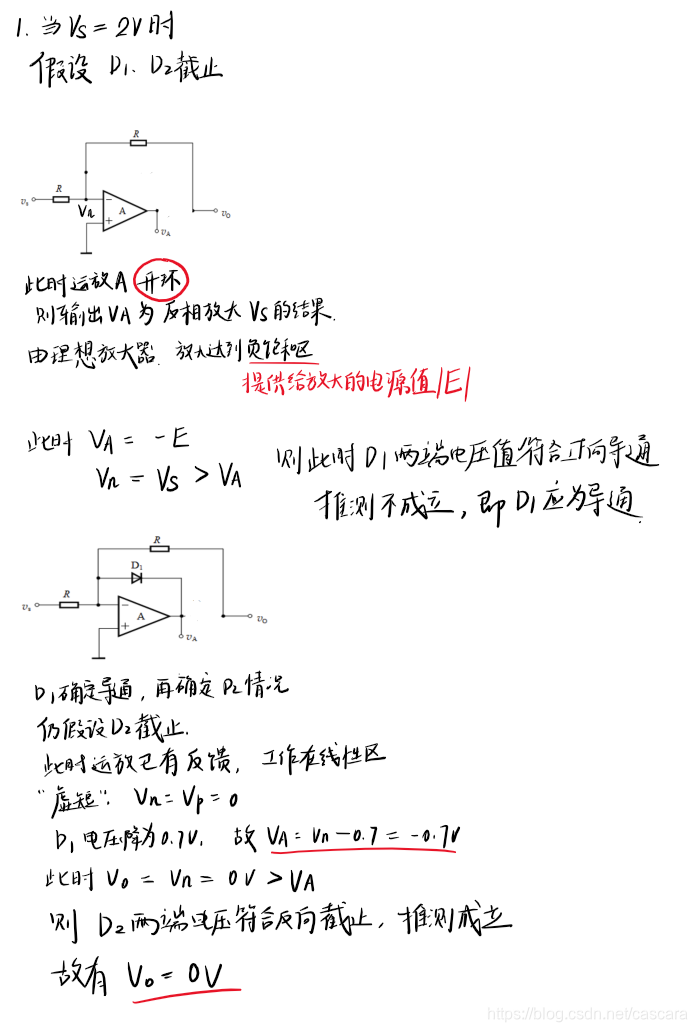 1. 当 Vs = 2V 时
假设 D1、D2 截止
R
R
vs
Vn
−
+
A
vA
vO
此时运放A 开环
则输出 VA 为 反相放大 Vs 的结果.
由理想放大器. 放大达到负饱和区
提供给放大的电源值|E|
此时 VA = -E
Vn = Vs > VA
则此时 D1 两端电压值符合正向导通
推测不成立，即 D1 应为导通.
R
D1
R
vs
−
+
A
vA
vO
D1确定导通，再确定 D2 情况
仍假设 D2 截止.
此时运放已有反馈，工作在线性区
"虚短"： Vn = Vp = 0
D1 电压降为 0.7V, 故 VA = Vn - 0.7 = -0.7V
此时 Vo = Vn = 0V > VA
则 D2 两端电压符合反向截止，推测成立
故有 Vo = 0V
https://blog.csdn.net/cascara